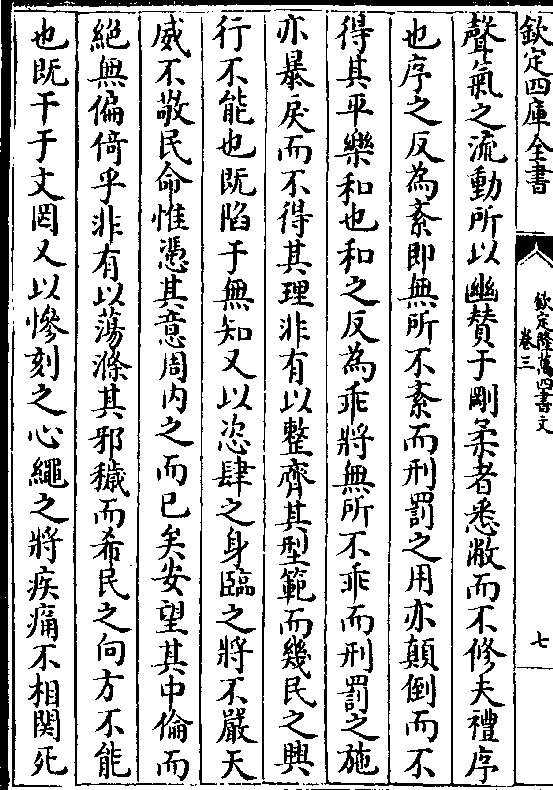 欽定四庫全書
欽定隆萬四書文
卷三
七
聲氣之流動所以幽贊于剛柔者悉敝而不修夫禮序
也序之反為紊即無所不紊而刑罰之用亦顛倒而不
得其平樂和也和之反為乖將無所不乖而刑罰之施
亦暴戾而不得其理非有以整齊其型範而幾民之興
行不能也既陷于無知又以恣肆之身臨之將不嚴天
威不敬民命惟憑其意周内之而已矣安望其中倫而
絶無偏倚乎非有以蕩滌其邪穢而希民之向方不能
也既干于文罔又以慘刻之心繩之將疾痛不相関死